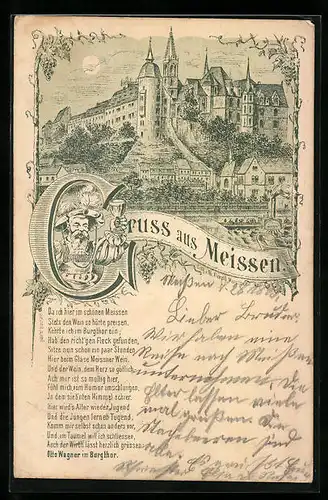 Gruss aus Meissen.
Da ich hier im schönen Meissen
Stets den Wein so hörte preisen,
Kehrte ich im Burgthor ein;
Hab den richt'gen Fleck gefunden,
Sitze nun schon ein paar Stunden
Hier beim Glase Meissner Wein.
Und der Wein, dem Herz so göttlich,
Ach mir ist so mollig hier,
Fühl mich vom Humor umschlungen,
In dem siebten Himmel schier.
Hier wird's Alter wieder Jugend
Und die Jungen Tugend,
Komm mir selbst schon anders vor,
Und, um Taumel will ich schliessen,
Auch der Wirth lässt herzlich grüssen
Otto Wagner im Burgthor.
Meißen d.
Lieber Bruder
Wir haben eine
Reise nach Meißen
unternommen. Die
Eltern lassen viele
mal grüßen. Die
Stachelbeeren sind
alle.